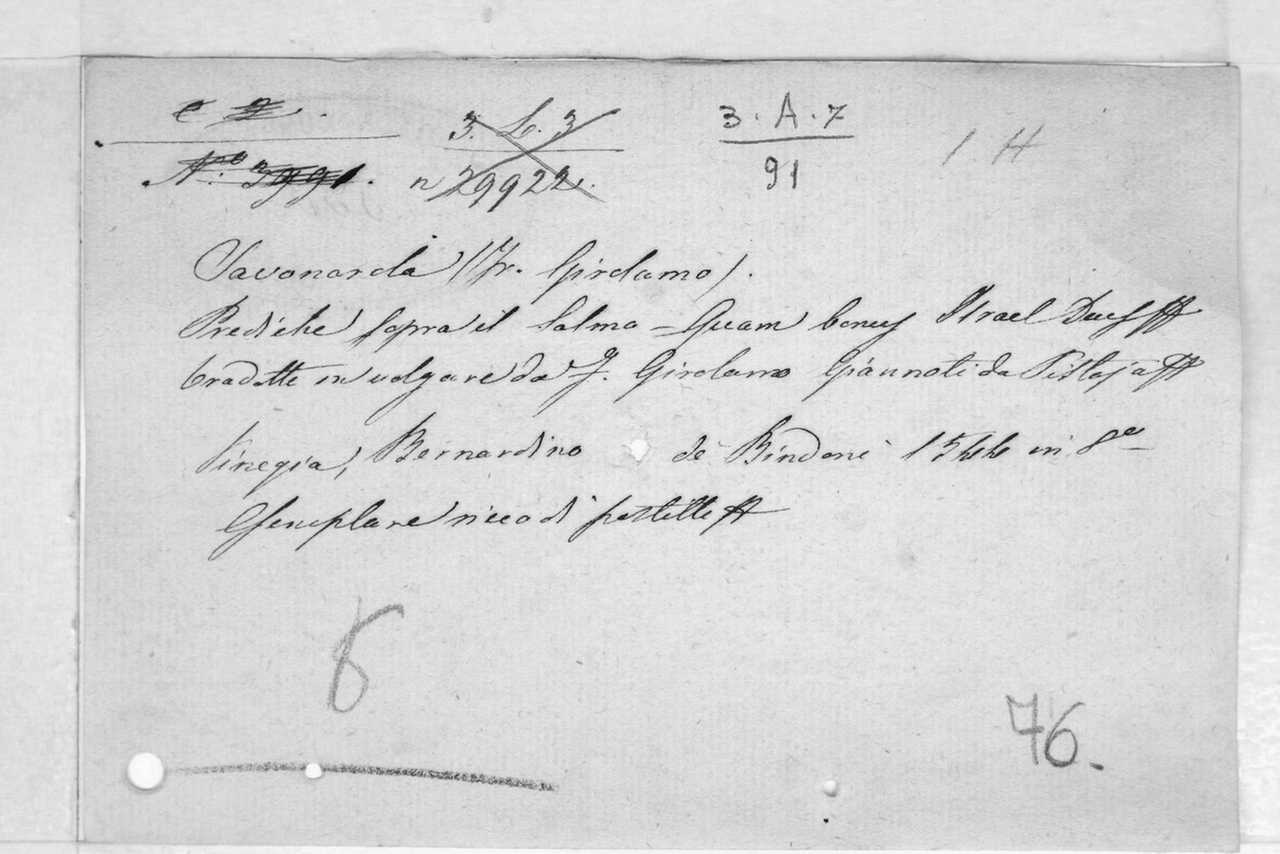 3. L. 3
3 . A . 7
1 H
No. 3991.
n 29922.
91
Savonarola (Fr. Girolamo).
Prediche sopra il Salmo - Quam bonus Israel Deus
tradotte in volgare da F. Girolamo Giannoti da Pistoja
Vinegia, Bernardino de Bindoni 1544 in 8o
Esemplare ricco di postille
8
76.